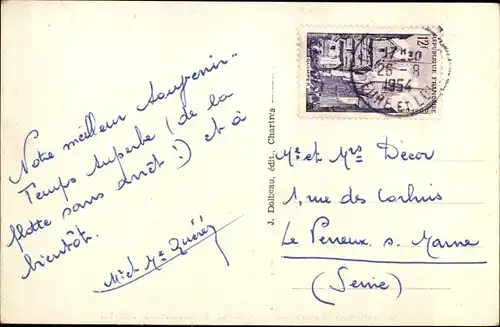 Notre meilleur souvenir..
Temps superbe (de la
flotte sans arrêt !) et à
bientôt.
M et Me Quéré
J. Dolbeau, édit. Chartres
12F
REPUBLIQUE FRANÇAISE
17 H 30
26 - 8
1954
EURE ET L
Mr et Mrs Décor
1, rue des Corluis
Le Perreux s. Marne
(Seine)